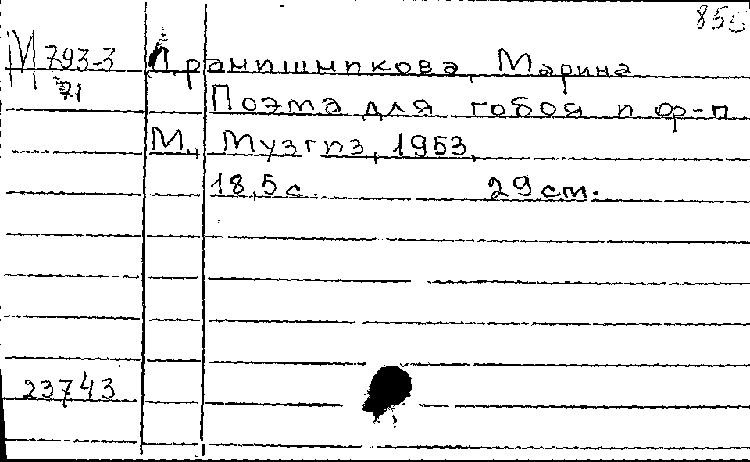 855
М 793-3
71
Дранишникова, Марина
Поэма для гобоя и ф-п
М., Музгиз, 1953,
18,5 с. 29 cm.
23743